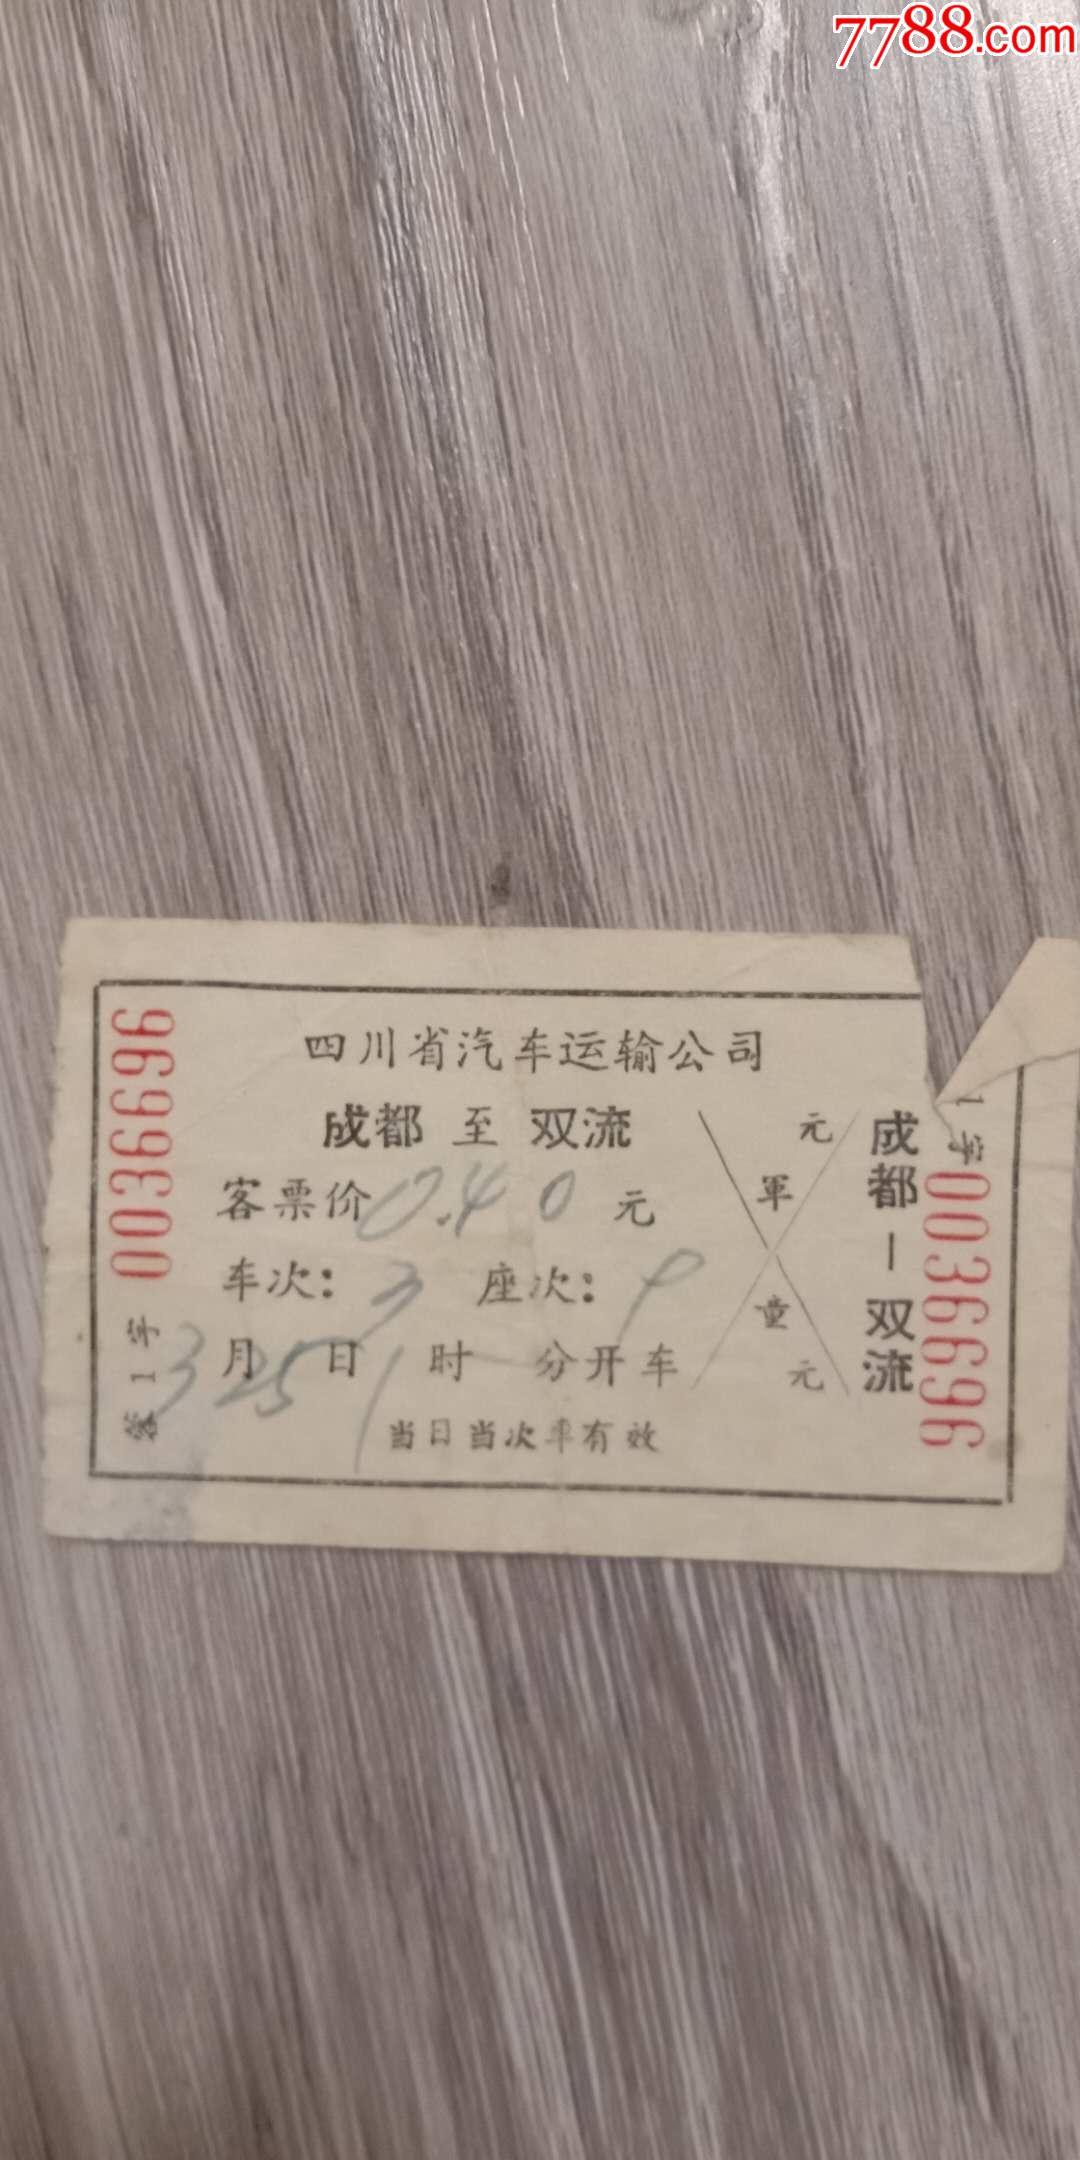 7788.com
四川省汽车运输公司
成都 至 双流
客票价 0.40 元
车次: 3 座次: 9
3月25日 1时 分开车
当日当次车有效
元
軍
童
元
成都—双流
客1字 0036696
1字 0036696